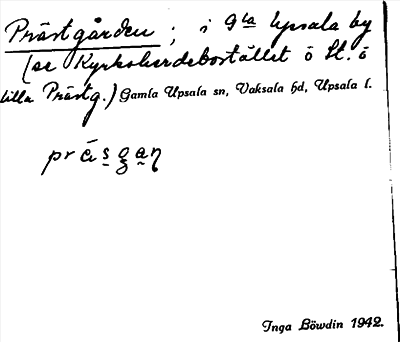 Prästgården ; i Gla Upsala by
(se Kyrkoherdebostället ö St. o
lilla Prästg.) Gamla Upsala sn, Vaksala hd, Upsala l.
Inga Löwdin 1942.